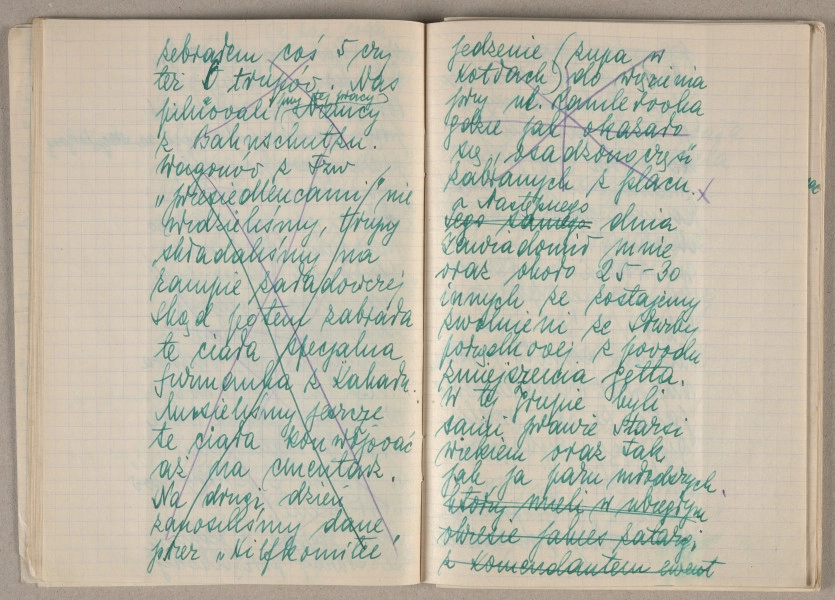 zebrałem coś 5 czy
też 6 trupów. Nas
pilnowali przy tej pracy Niemcy
z Bahnschutzu.
Wagonów z Tzw
„przesiedleńcami" nie
widzieliśmy, trupy
składaliśmy na
rampie załadowczej
skąd potem zabrała
te ciała specjalna
furmanka z Kahału.
Musieliśmy jeszcze
te ciała konwojować
aż na cmentarz.
Na drugi dzień
zanosiliśmy dane
przez „Hilfkomitee"
jedzenie (zupa w
kotłach) do więzienia
przy ul.
gdzie jak okazało
się, osadzono część
zabranych z placu.
Następnego
tego samego dnia
Zawiadomił mnie
oraz około 25-30
innych że zostajemy
zwolnieni ze służby
porządkowej z powodu
zmniejszenia getta.
W tej grupie byli
sami prawie starsi
wiekiem oraz tak
jak ja paru młodszych
którzy mieli w ubiegłym
okresie jakieś zatargi
z komendantem ewent